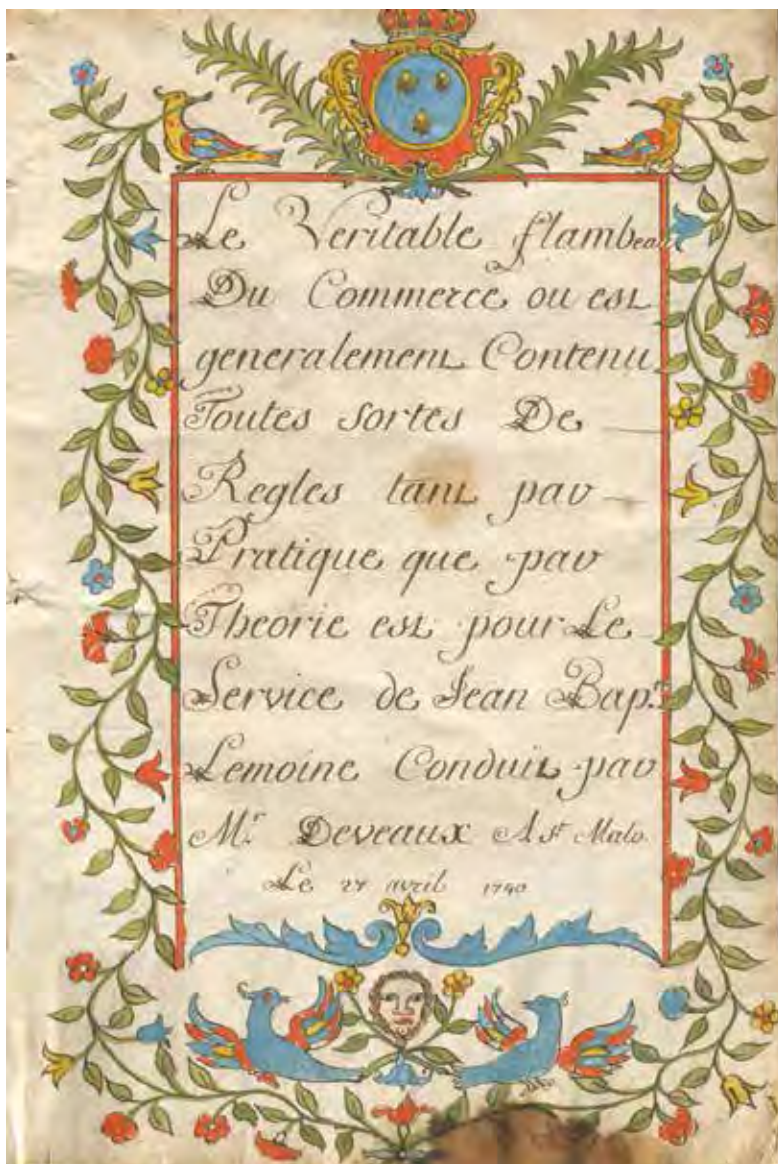 Le Veritable flambeau
Du Commerce ou est
generalement Contenu
Toutes sortes De
Regles tant par
Pratique que par
Theorie est pour Le
Service de Jean Bap.te
Lemoine Conduit par
M.r Deveaux A st Malo
Le 27 avril 1740